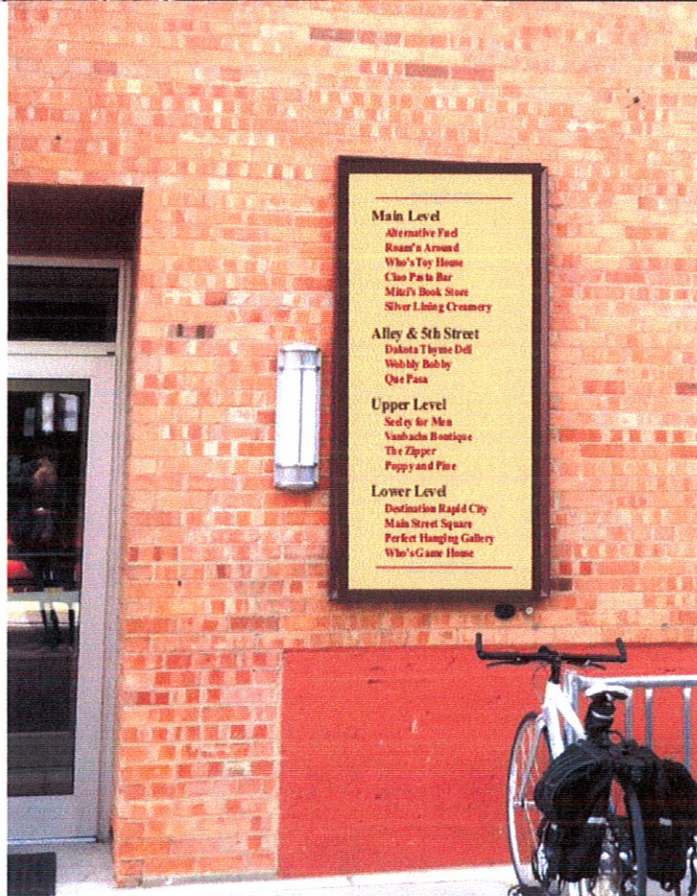 Main Level
Alternative Fuel
Roam'n Around
Who's Toy House
Ciao Pasta Bar
Mitzi's Book Store
Silver Lining Creamery
Alley & 5th Street
Dakota Thyme Deli
Wobbly Bobby
Que Pasa
Upper Level
Seeley for Men
Vanbachs Boutique
The Zipper
Poppy and Pine
Lower Level
Destination Rapid City
Main Street Square
Perfect Hanging Gallery
Who's Game House